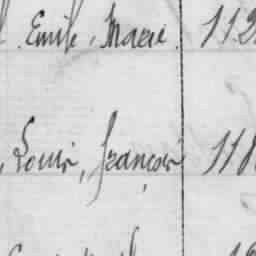 Emile, Marie. 112
, Louis, françois 118